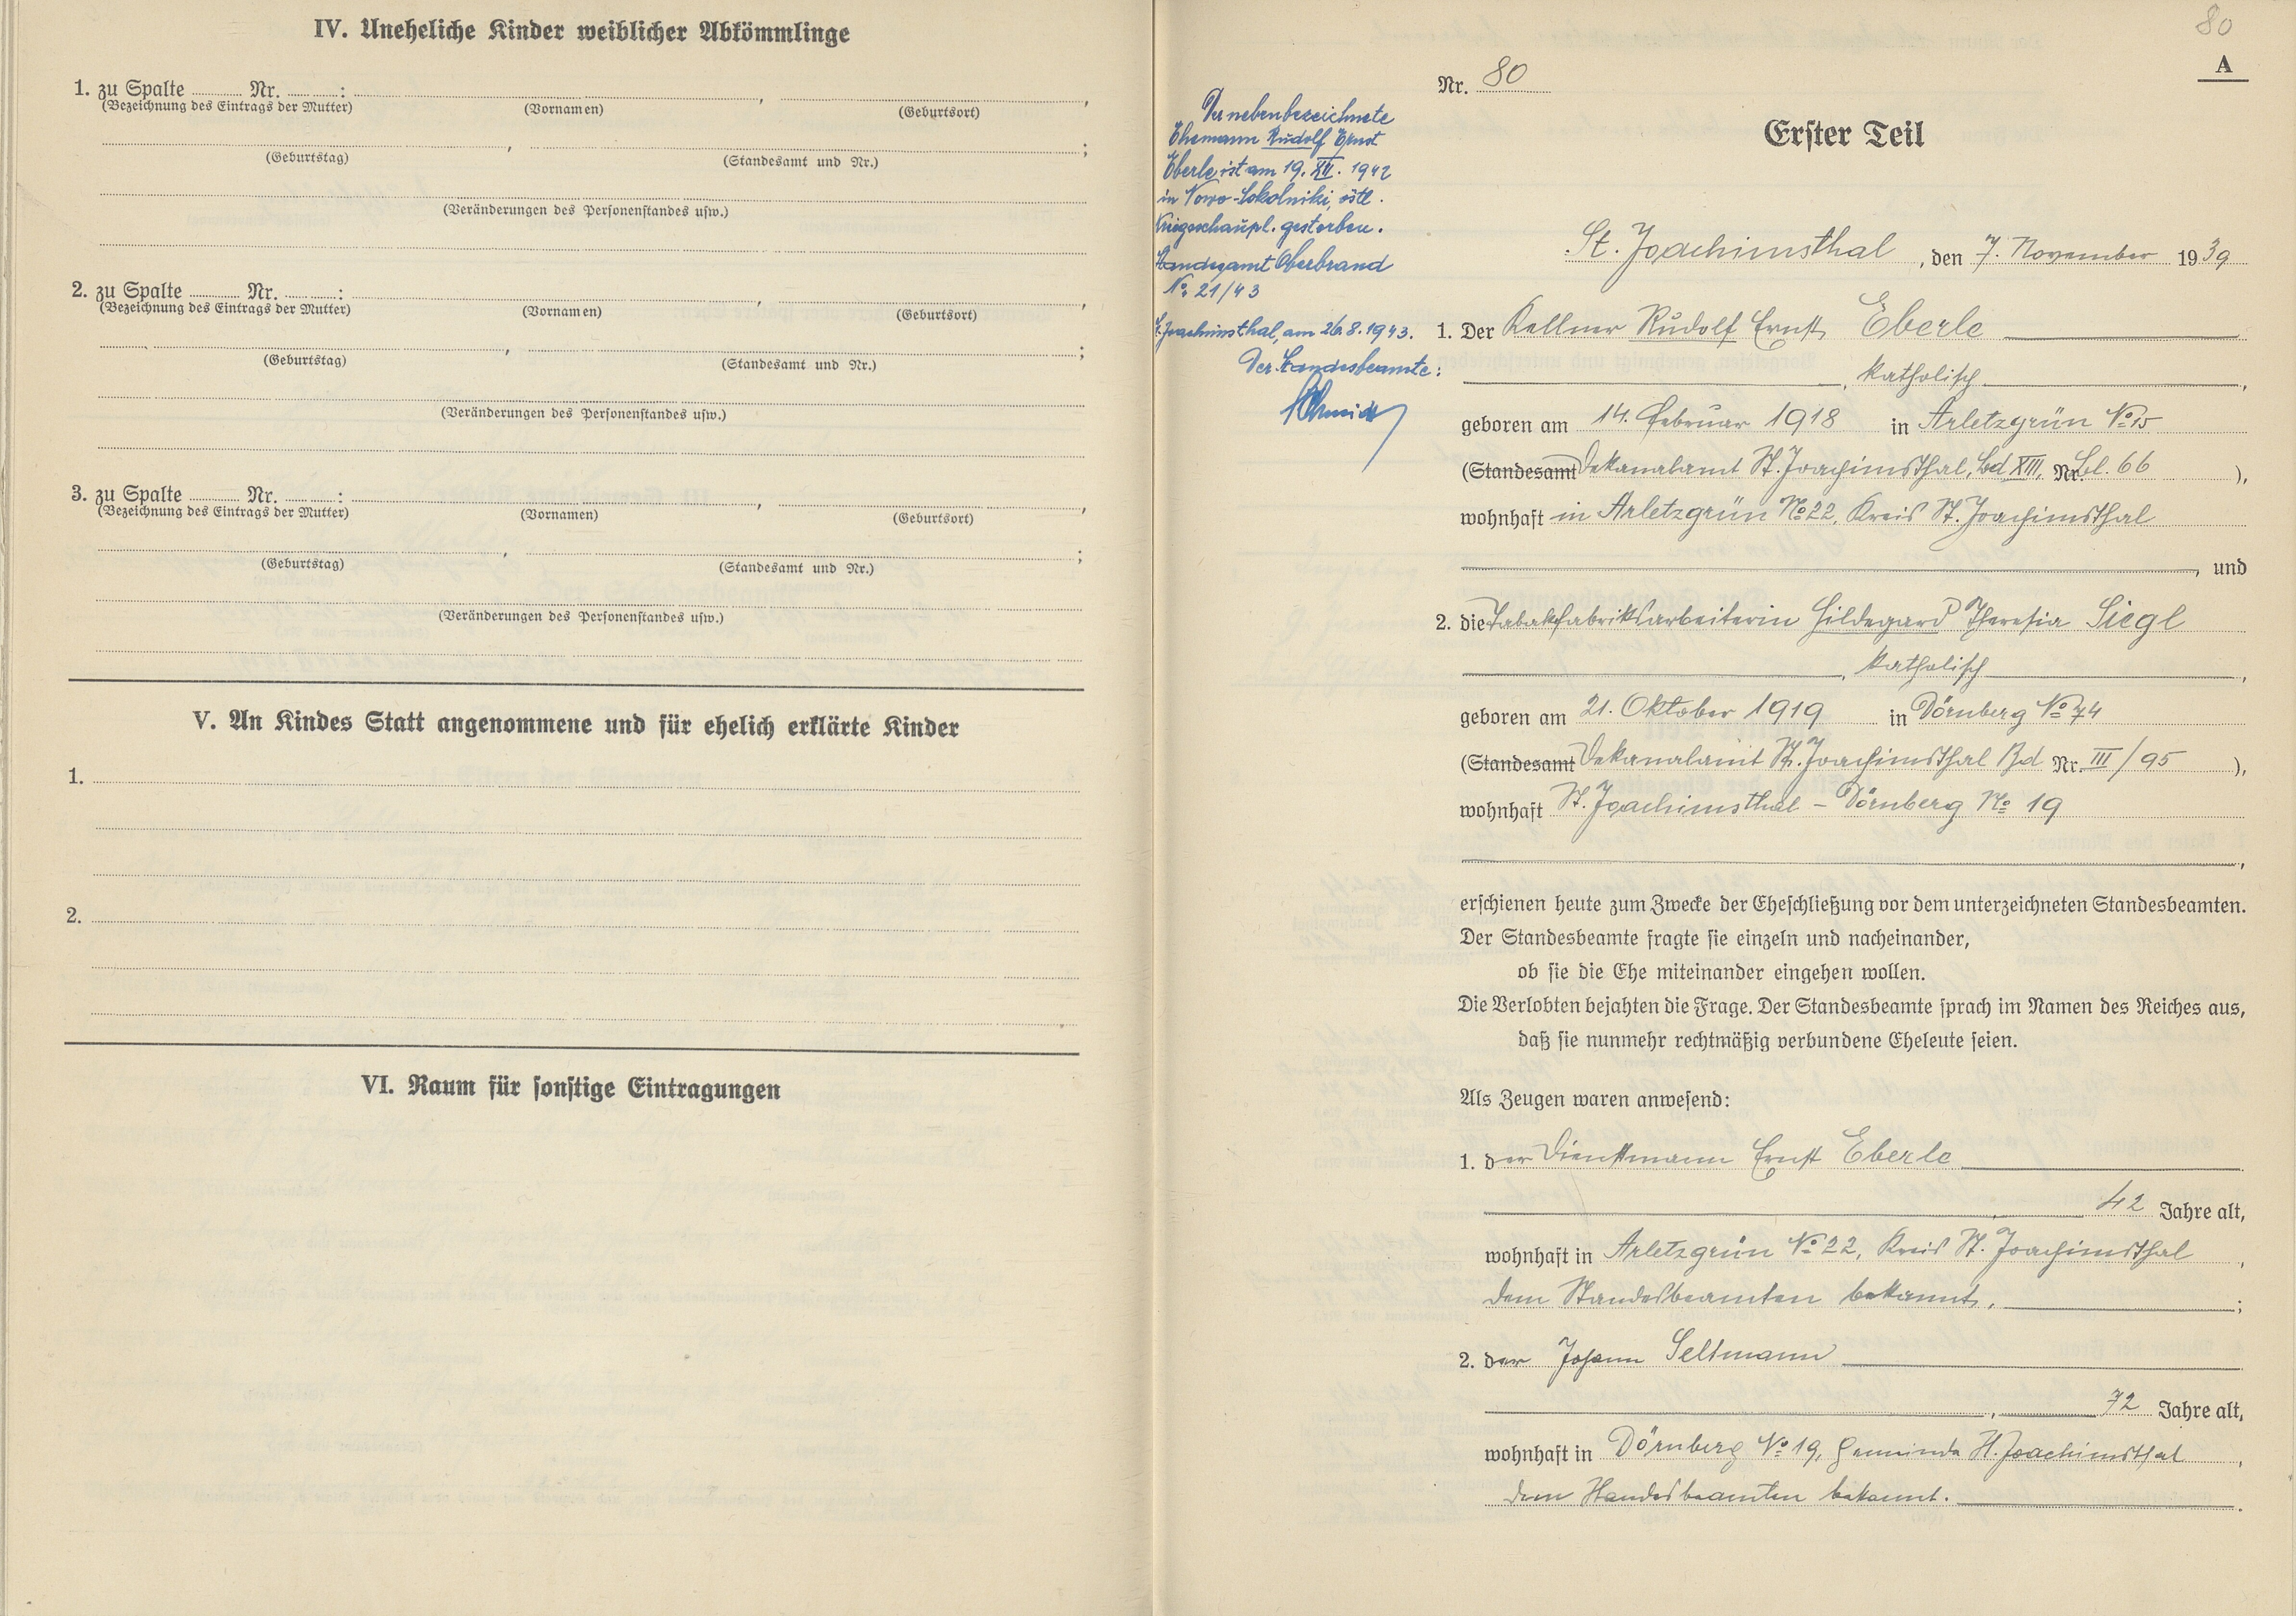 IV. Uneheliche Kinder weiblicher Abkömmlinge
1. zu Spalte Nr. :
(Bezeichnung des Eintrags der Mutter) (Vornamen) (Geburtsort)
(Geburtstag) (Standesamt und Nr.)
(Veränderungen des Personenstandes usw.)
2. zu Spalte Nr. :
(Bezeichnung des Eintrags der Mutter) (Vornamen) (Geburtsort)
(Geburtstag) (Standesamt und Nr.)
(Veränderungen des Personenstandes usw.)
3. zu Spalte Nr. :
(Bezeichnung des Eintrags der Mutter) (Vornamen) (Geburtsort)
(Geburtstag) (Standesamt und Nr.)
(Veränderungen des Personenstandes usw.)
V. An Kindes Statt angenommene und für ehelich erklärte Kinder
1.
2.
VI. Raum für sonstige Eintragungen
80
A
Nr. 80
Erster Teil
Der nebenbezeichnete
Ehemann Rudolf Ernst
Eberle ist am 19. XII. 1942
in Nowo-Sokolniki, östl.
Kriegsschaupl. gestorben.
Standesamt Oberbrand
No 21/43
St. Joachimsthal, am 26.8.1943.
Der Standesbeamte:
St. Joachimsthal, den 7. November 1939
1. Der Kellner Rudolf Ernst Eberle
, katholisch,
geboren am 14. Februar 1918 in Arletzgrün No 15
(Standesamt Dekanalamt St. Joachimsthal, Bd XIII, Nr. Bl. 66 ),
wohnhaft in Arletzgrün No 22, Kreis St. Joachimsthal
, und
2. die Tabakfabriksarbeiterin Hildegard Theresia Siegl
, katholisch,
geboren am 21. Oktober 1919 in Dörnberg No 74
(Standesamt Dekanalamt St. Joachimsthal Bd Nr. III/95 ),
wohnhaft St. Joachimsthal - Dörnberg No 19
,
erschienen heute zum Zwecke der Eheschließung vor dem unterzeichneten Standesbeamten.
Der Standesbeamte fragte sie einzeln und nacheinander,
ob sie die Ehe miteinander eingehen wollen.
Die Verlobten bejahten die Frage. Der Standesbeamte sprach im Namen des Reiches aus,
daß sie nunmehr rechtmäßig verbundene Eheleute seien.
Als Zeugen waren anwesend:
1. der Dienstmann Ernst Eberle
, 42 Jahre alt,
wohnhaft in Arletzgrün No 22, Kreis St. Joachimsthal,
dem Standesbeamten bekannt, ;
2. der Johann Seltmann
, 72 Jahre alt,
wohnhaft in Dörnberg No 19, Gemeinde St. Joachimsthal,
dem Standesbeamten bekannt.